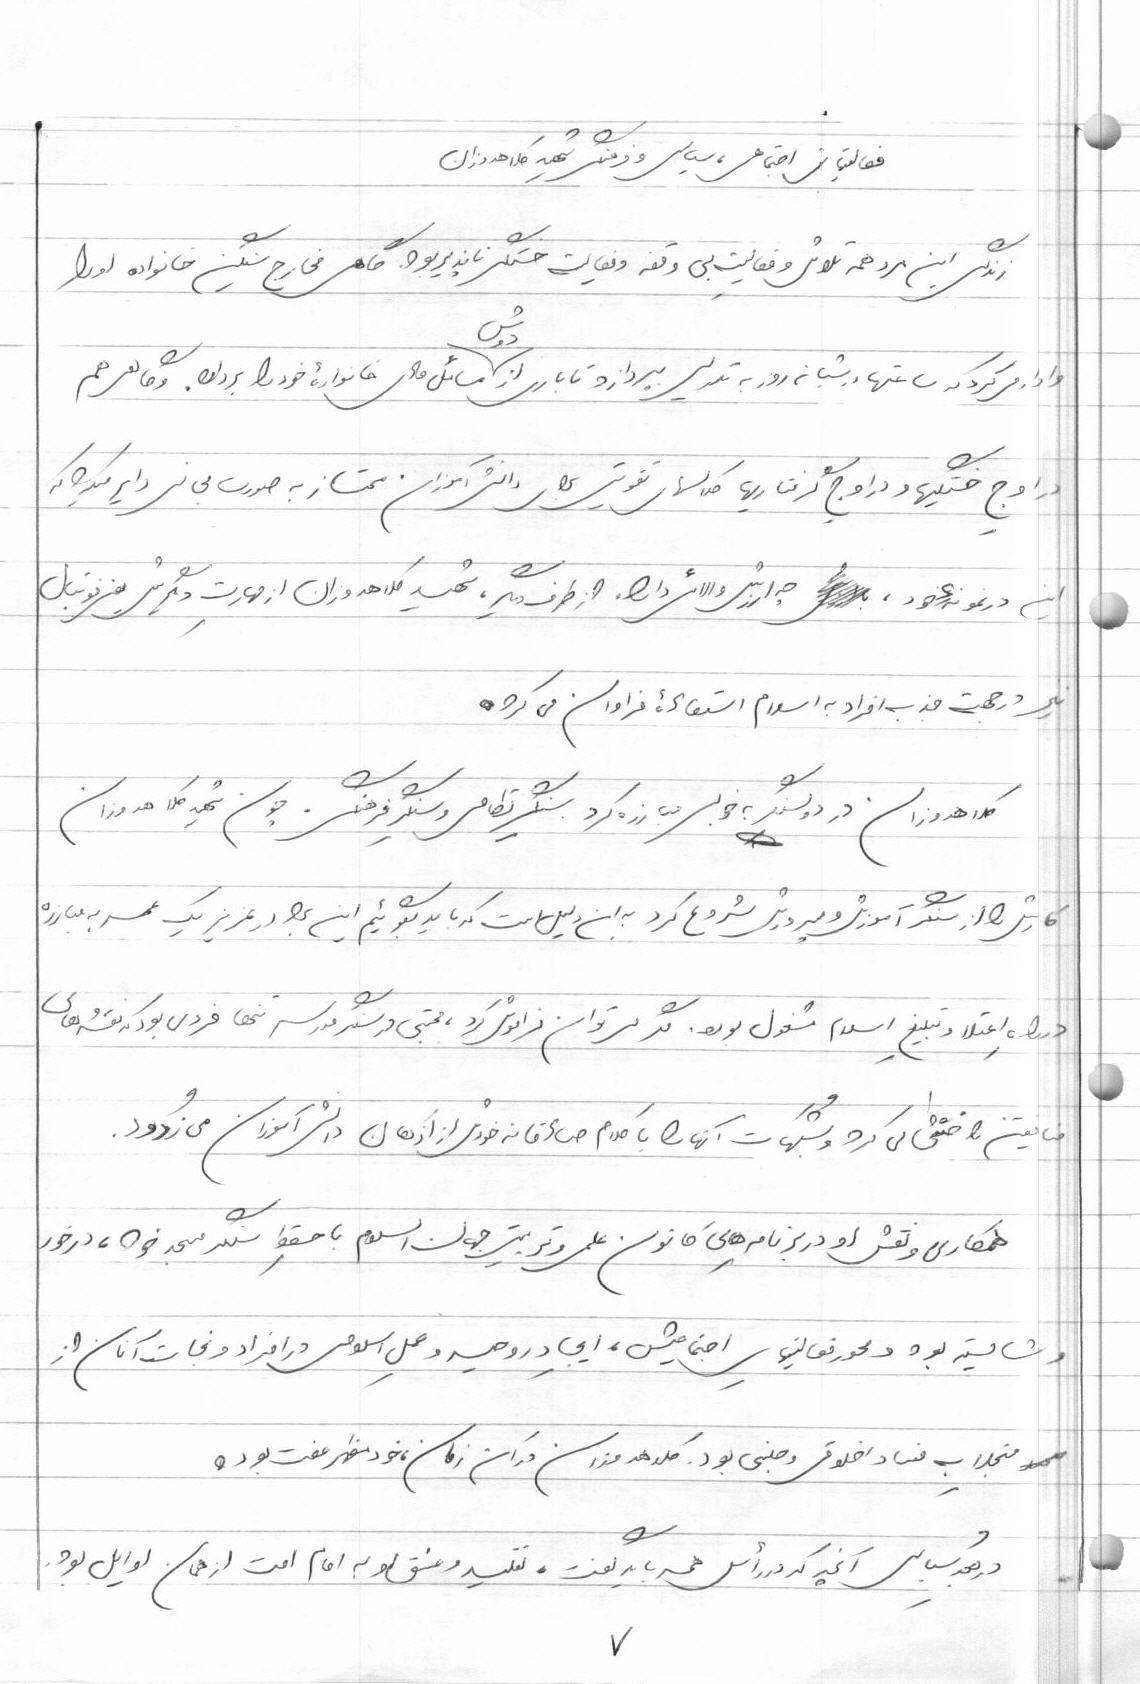 فعالیتهای اجتماعی، سیاسی و فرهنگی شهید کلاهدوزان
زندگی این مرد همه تلاش و فعالیت بی وقفه و فعالیت خستگی ناپذیر بود. گاهی مخارج سنگین خانواده او را
وادار می کرد که ساعتها در شبانه روز به تدریس بپردازد تا باری از دوش مسائل مالی خانوادهٔ خود را بردارد. و گاهی هم
در اوج خستگیها و در اوج گرفتاریها کلاسهای تقویتی برای دانش آموزان ممتاز به صورت مجانی دایر میکرد که
این در نمونه خود، چه ارزش والائی دارد. از طرف دیگر، شهید کلاهدوزان از مهارت ورزشی یعنی فوتبال
نیز در جهت جذب افراد به اسلام استفادهٔ فراوان می کرد.
کلاهدوزان در دو سنگر بخوبی مبارزه کرد سنگر نظامی و سنگر فرهنگی. چون شهید کلاهدوزان
کارش را از سنگر آموزش و پرورش شروع کرد به این دلیل است که باید بگوئیم این برادر عزیز یک عمر به مبارزه
در راه اعتلا و تبلیغ اسلام مشغول بود. مگر می توان فراموش کرد، مجتبی در سنگر مدرسه تنها فردی بود که نقشه های
منافقین را خنثی می کرد و شبهات آنها را با کلام صادقانه خودش از اذهان دانش آموزان می زدود.
همکاری و نقش او در برنامه های کانون علمی و تربیتی جهان اسلام با حفظ سنگر مسجد خود، در خور
و شایسته بود و محور فعالیتهای اجتماعیش، ایجاد روحیه و عمل اسلامی در افراد و نجات آنان از
منجلاب فساد اخلاقی و جنسی بود. کلاهدوزان در آن زمان، خود مظهر عفت بود.
در بعد سیاسی آنچه که در رأس همه باید گفت، تقلید و عشق او به امام امت از همان اوایل بود.
۷